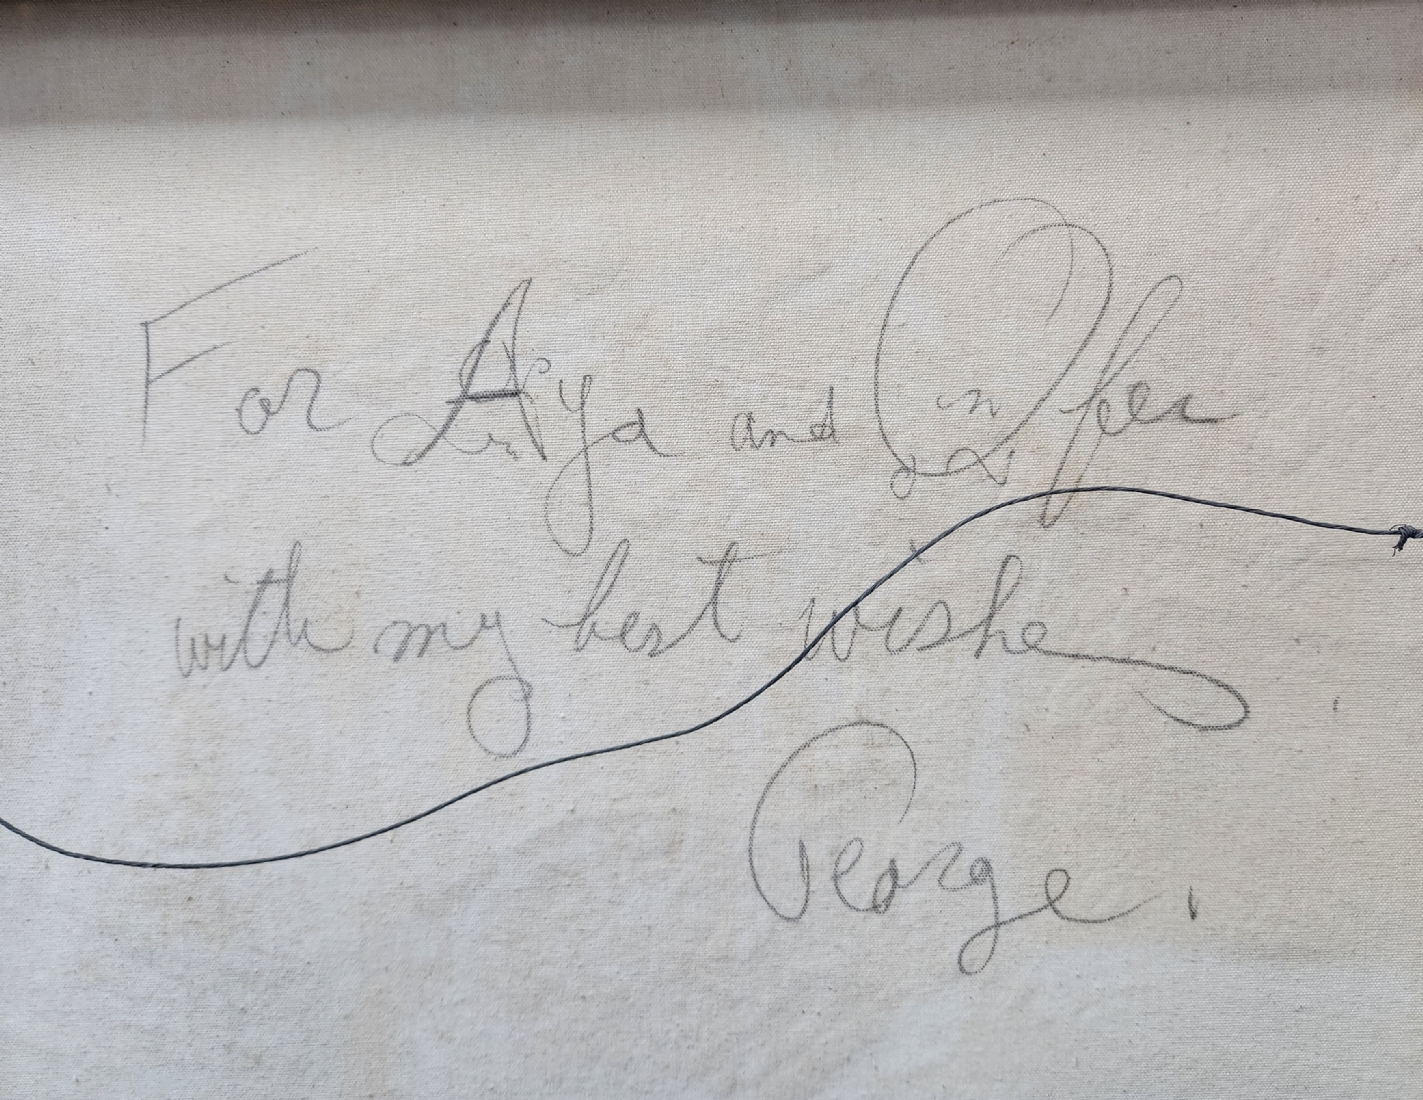 For Aya and Ofer
with my best wishes.
George.